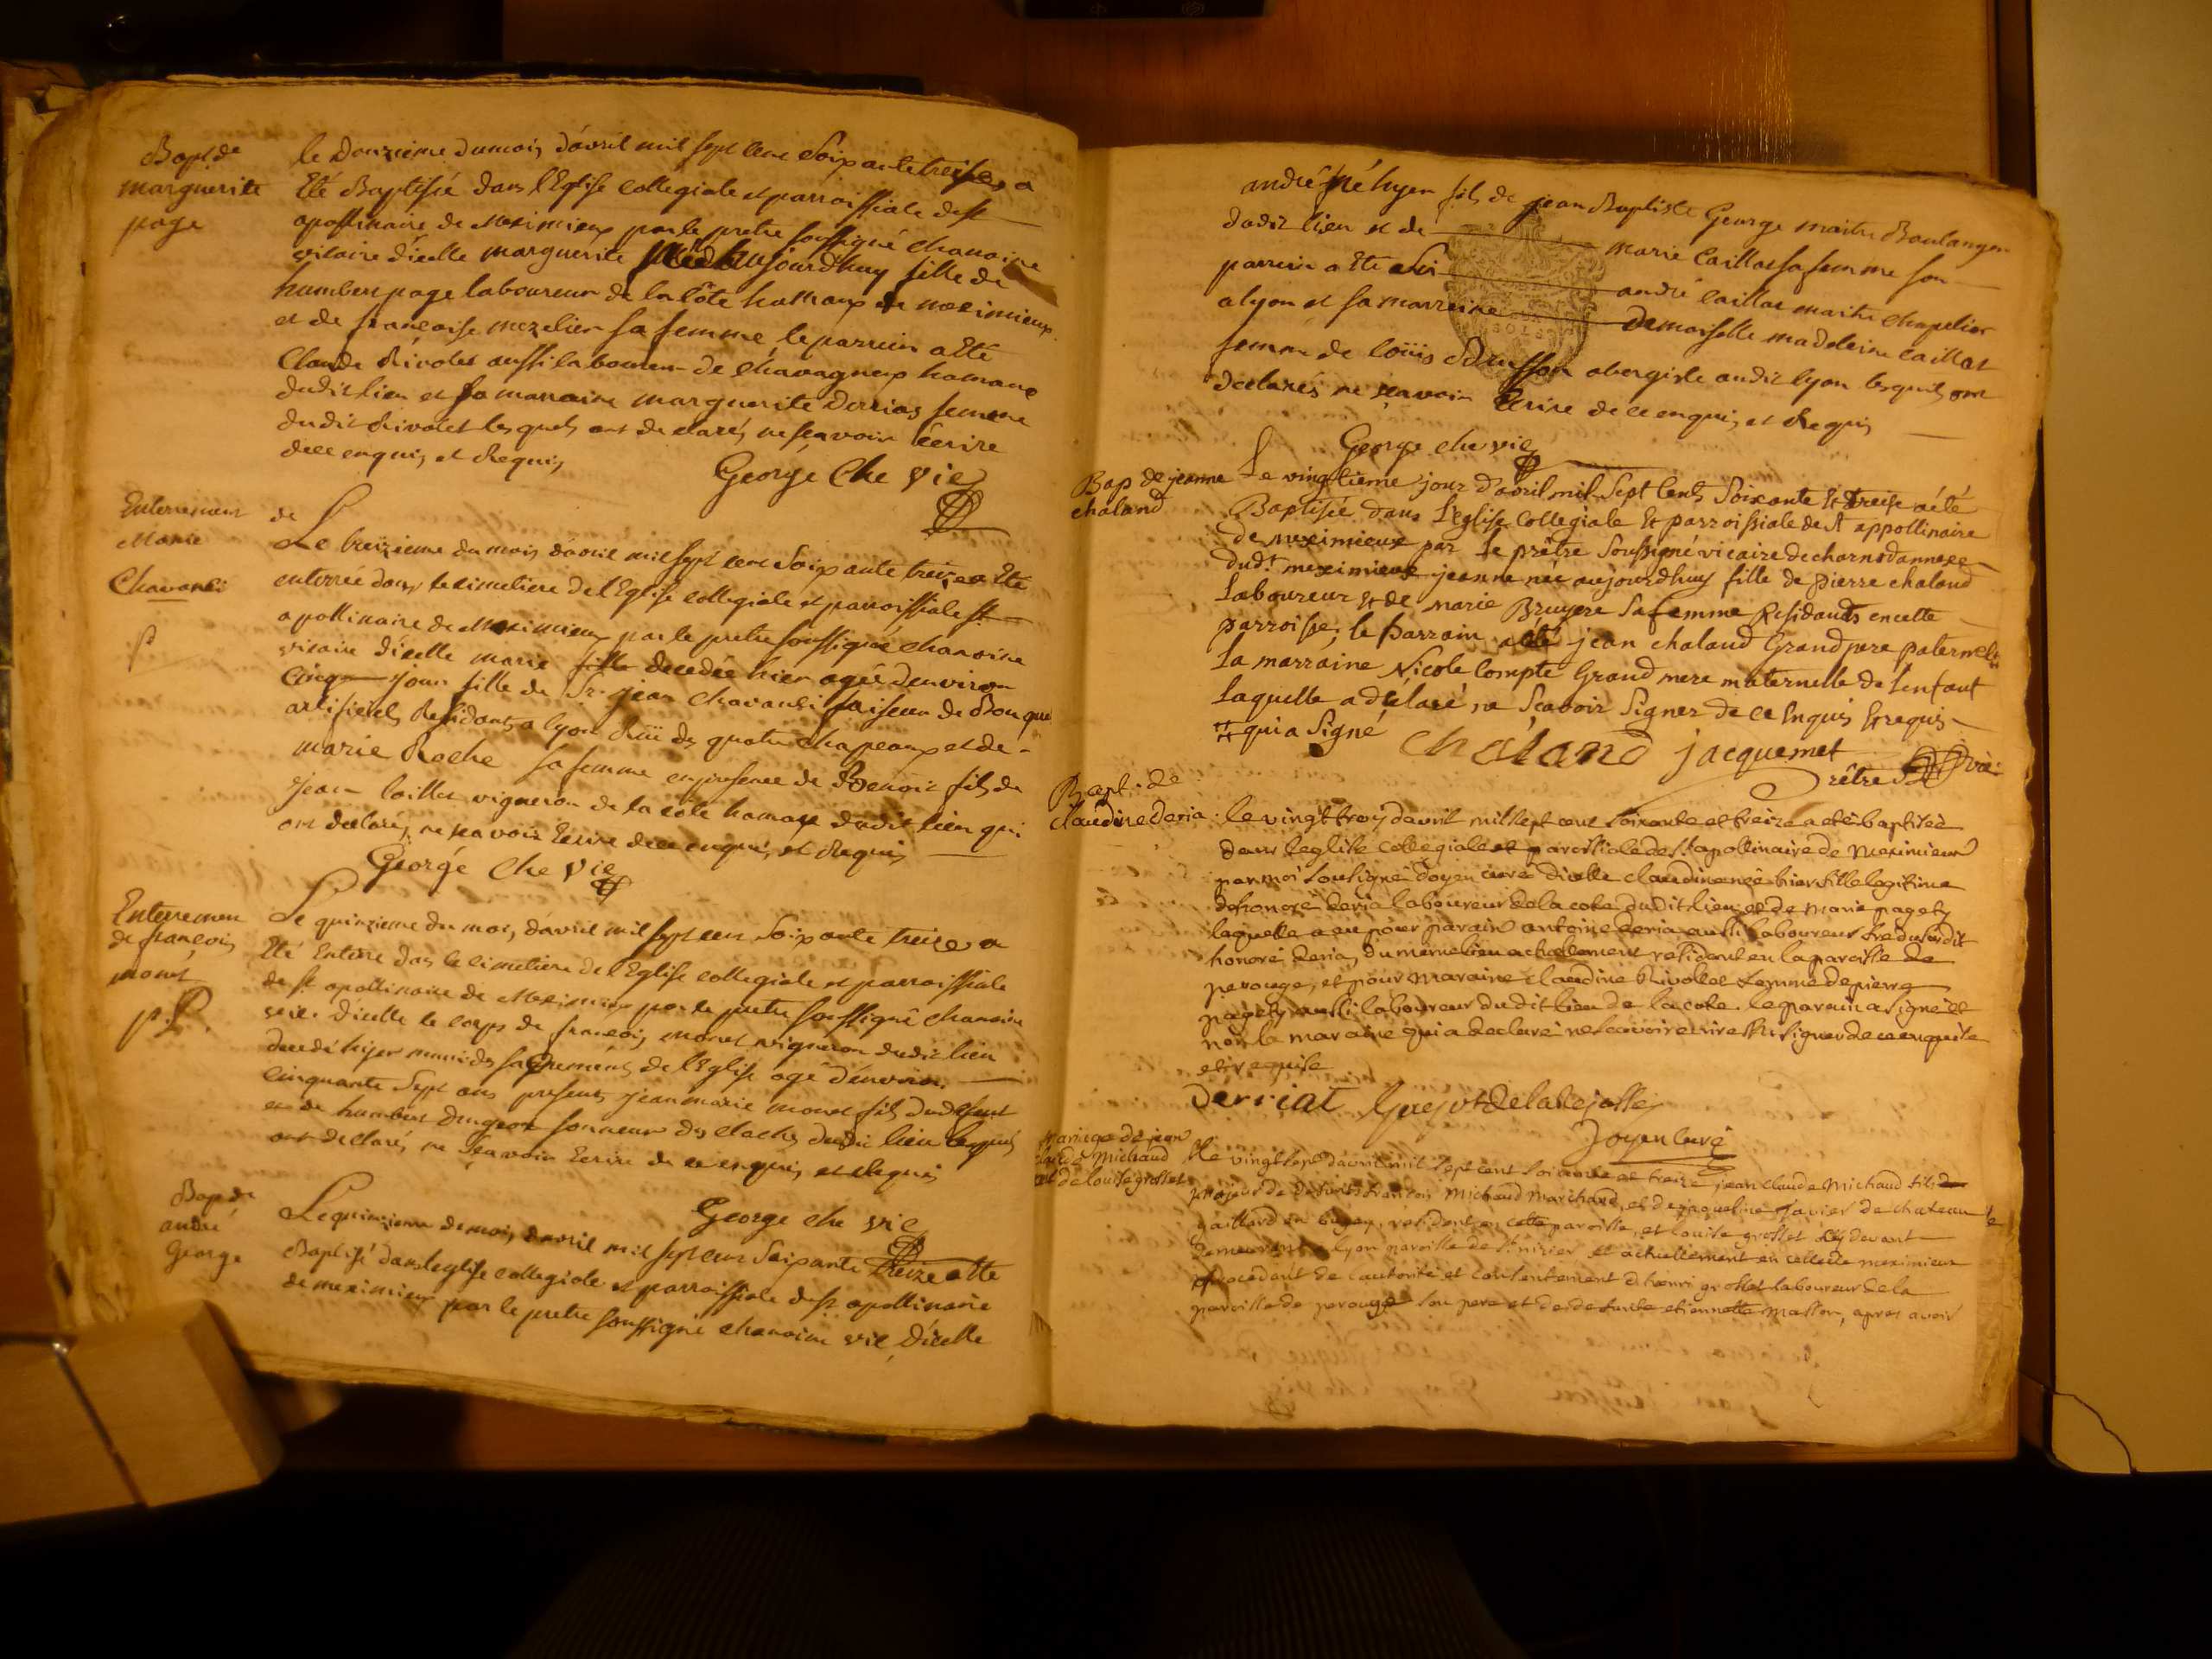 Bapt de
marguerite
page
le Douzieme du mois d'avril mil sept cens Soixante treise a
Eté Baptisée dans l'Eglise collegiale et parroissiale de st
apollinaire de Meximieux par le pretre soussigné chanoine
vicaire d'icelle marguerite née aujourd'huy fille de
humbert page laboureur de la Côte hameaux de meximieux
et de françoise mezelier sa femme, le parrein a eté
Claude Rivolet aussi laboureur de chavagneux hameaux
dudit lien et sa marraine marguerite Derrias femme
dudit Rivolet lesquels ont declarés ne sçavoir écrire
de ce enquis et Requis
George Che Vic
Enterrement de
Marie
Chavanci
Le treizieme du mois d'avril mil sept cens Soixante treize a Eté
enterrée dans le cimetiere de l'Eglise collegiale et parroissiale st
apollinaire de Meximieux par le pretre soussigné chanoine
vicaire d'icelle marie fille decedée hier agée d'environ
Cinq jours fille de Sr. jean Chavanci faiseur de Bouque
artificiels Residants a lyon Rüe des quatre chapeaux et de
marie Roche sa femme en presence de Benoit fils de
Jean Caillat vigneron de la côte hameaux dudit lieu qui
ont declarés ne sçavoir Ecrire de ce enquis et Requis
George Che Vic
Enterremen
de françois
monet
Le quinzieme du mois d'avril mil sept cens Soixante treize a
Eté Enterré dans le cimetiere de l'Eglise collegiale et parroissiale
de st apollinaire de Meximieux par le pretre soussigné chanoine
vic. d'icelle le corps de françois monet vigneron dudit lieu
decedé hyer muni des sacrements de l'Eglise agé d'environ
cinquante Sept ans presents jean marie monet fils du defunt
et de humbert Dongeon sonneur des cloches dudit lieu lesquels
ont declarés ne sçavoir Ecrire de ce enquis et Requis
George che vic
Bap de
andré
George
Le quinzieme de mois d'avril mil sept cens Soixante treize a Eté
Baptisé dans l'eglise collegiale et parroissiale de st apollinaire
de meximieux par le pretre soussigné chanoine vic. d'icelle
andré né hyer fils de jean Baptiste George maitre Boulanger
dudit lieu et de marie Caillat sa femme son
parrein a Eté Sr andré Caillat maitre chapelier
a lyon et sa marreine demoiselle madeleine Caillat
femme de loüis Brusson abergiste audit lyon lesquels ont
declarés ne sçavoir Ecrire de ce enquis et Requis
George che vic
Bap de jeanne
chaland
Le vingtieme jour d'avril mil Sept Cents Soixante et treise a été
Baptisée dans L'eglise Collegiale et parroissiale de St appollinaire
de meximieux par Le prêtre soussigné vicaire de charnoz annexe
dudt meximieux jeanne née aujourdhuy fille de pierre chaland
Laboureur et de marie Bruyere Sa femme Residants en cette
parroisse; le parrain a été jean chaland Grand pere paternel
La marraine Nicole Compte Grand mere maternelle de L'enfant
Laquelle a declaré ne Scavoir Signer de ce Enquis et requis
qui a Signé
Chaland jacquemet
prêtre vic
Bapt. de
claudine deria
Le vingt troy davril mil sept cent soixante et treize a été baptisée
dans l'eglise collegiale et paroissiale de St apollinaire de meximieux
par moi soussigné doyen curé d'icelle claudine née hier fille legitime
de honoré deria laboureur de la cote dudit lieu et de marie pagety
laquelle a eu pour parain antoine deria aussi laboureur fre du susdit
honoré deria du meme lieu actuelement residant en la paroisse de
perouge, et pour maraine claudine Rivollet femme de pierre
pagety aussi laboureur dudit lieu de la cote. le parain a signé et
non la maraine qui a declaré ne scavoir ecrire ni signer de ce enquise
et requise
Derriat
doyen curé
Mariage de jean
claude Michaud
et de louise grosset
Le vingt sept davril mil sept cent soixante et treize jean claude Michaud fils
majeur de defunts francois Michaud marchand, et de jaqueline Javier de chateau
gaillard en bugey, resident en cette paroisse, et louise grosset cy devant
demeurant a lyon paroisse de St nizier et actuellement en celle de meximieux
procedant de l'autorité et consentement d henri grosset laboureur de la
paroisse de perouge son pere et de defunte etiennette masson, apres avoir